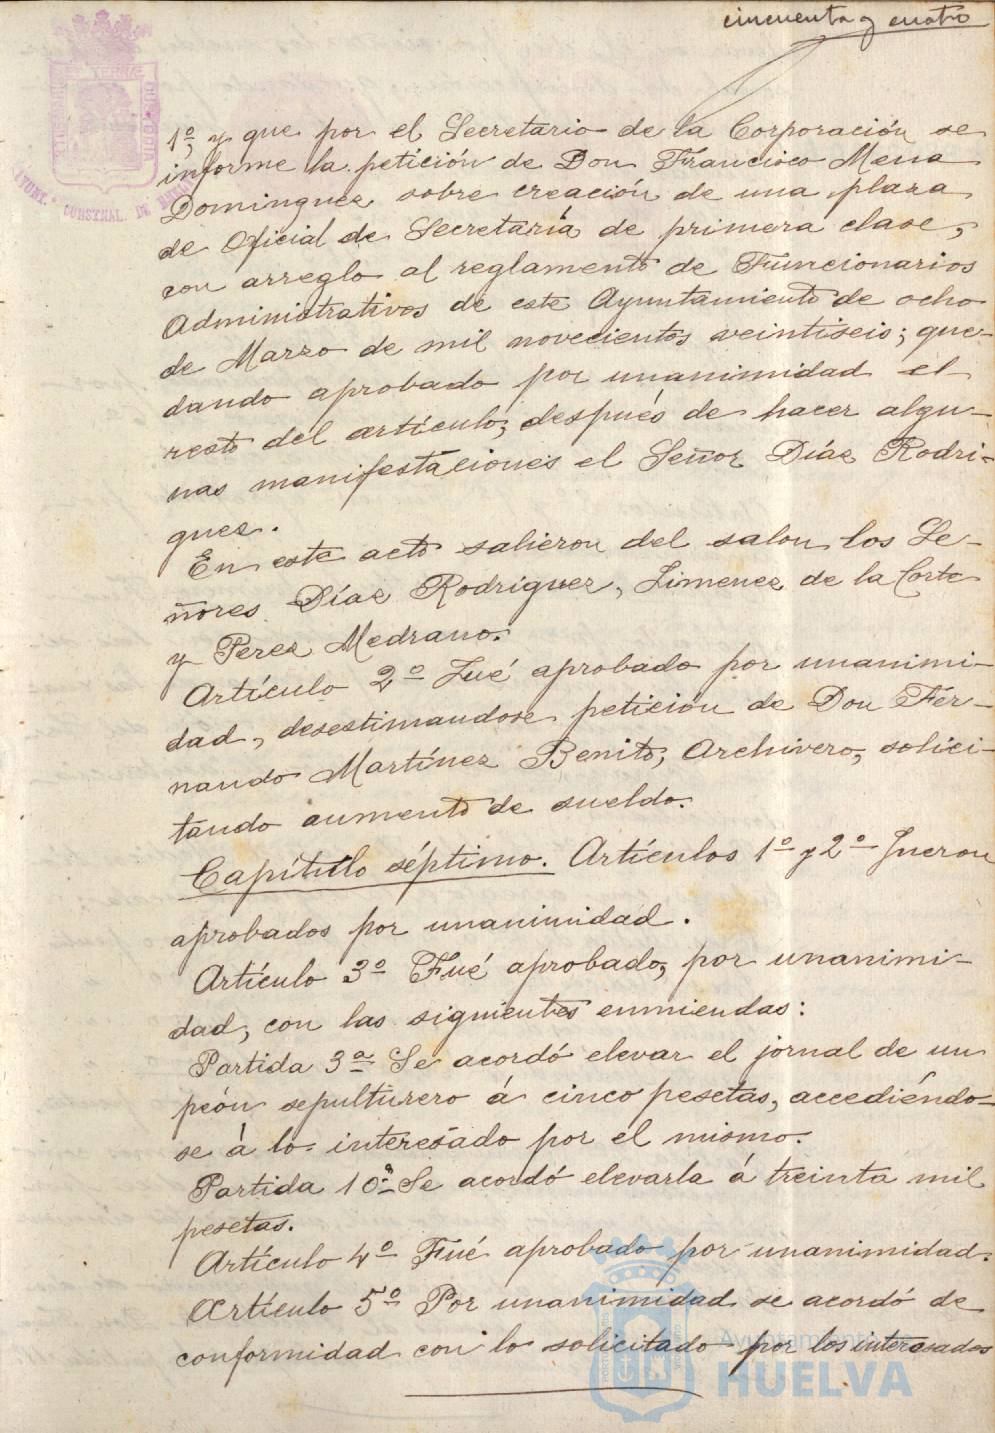 cincuenta y cuatro
1º, y que por el Secretario de la Corporación se
informe la petición de Don Francisco Mena
Dominguez sobre creación de una plaza
de Oficial de Secretaría de primera clase,
con arreglo al reglamento de Funcionarios
Administrativos de este Ayuntamiento de ocho
de Marzo de mil novecientos veintiseis; que-
dando aprobado por unanimidad el
resto del artículo, después de hacer algu-
nas manifestaciones el Señor Díaz Rodri-
guez.
En este acto salieron del salon los Se-
ñores Díaz Rodríguez, Jimenez de la Corte
y Perez Medrano.
Artículo 2º Fué aprobado por unanimi-
dad, desestimandose petición de Don Fer-
nando Martínez Benito, Archivero, solici-
tando aumento de sueldo.
Capítulo séptimo. Artículos 1º y 2º Fueron
aprobados por unanimidad.
Artículo 3º Fué aprobado, por unanimi-
dad, con las siguientes enmiendas:
Partida 3ª Se acordó elevar el jornal de un
peón sepulturero á cinco pesetas, accediéndo-
se á lo interesado por el mismo.
Partida 10ª Se acordó elevarla á treinta mil
pesetas.
Artículo 4º Fué aprobado por unanimidad.
Artículo 5º Por unanimidad se acordó de
conformidad con lo solicitado por los interesados
Ayuntamiento
HUELVA